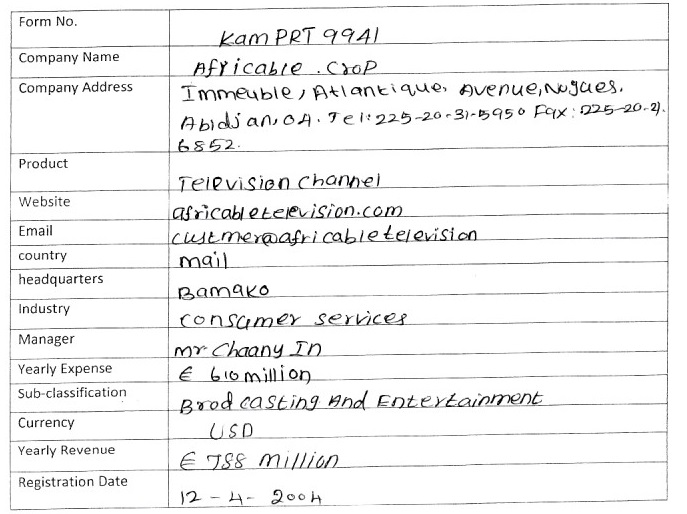 Form No. Kam PRT 9941
Company Name Africable . CroP
Company Address Immeuble, Atlantique, Avenue, Nogues.
Abidjan, 04. Tel: 225-20-31-5950 Fax: 225-20-21.
6852.
Product Television Channel
Website africabletelevision.com
Email custmer@africabletelevision
country mail
headquarters Bamako
Industry consumer services
Manager mr Chaany In
Yearly Expense € 610 million
Sub-classification Brodcasting And Entertainment
Currency USD
Yearly Revenue € 788 million
Registration Date 12 - 4 - 2004